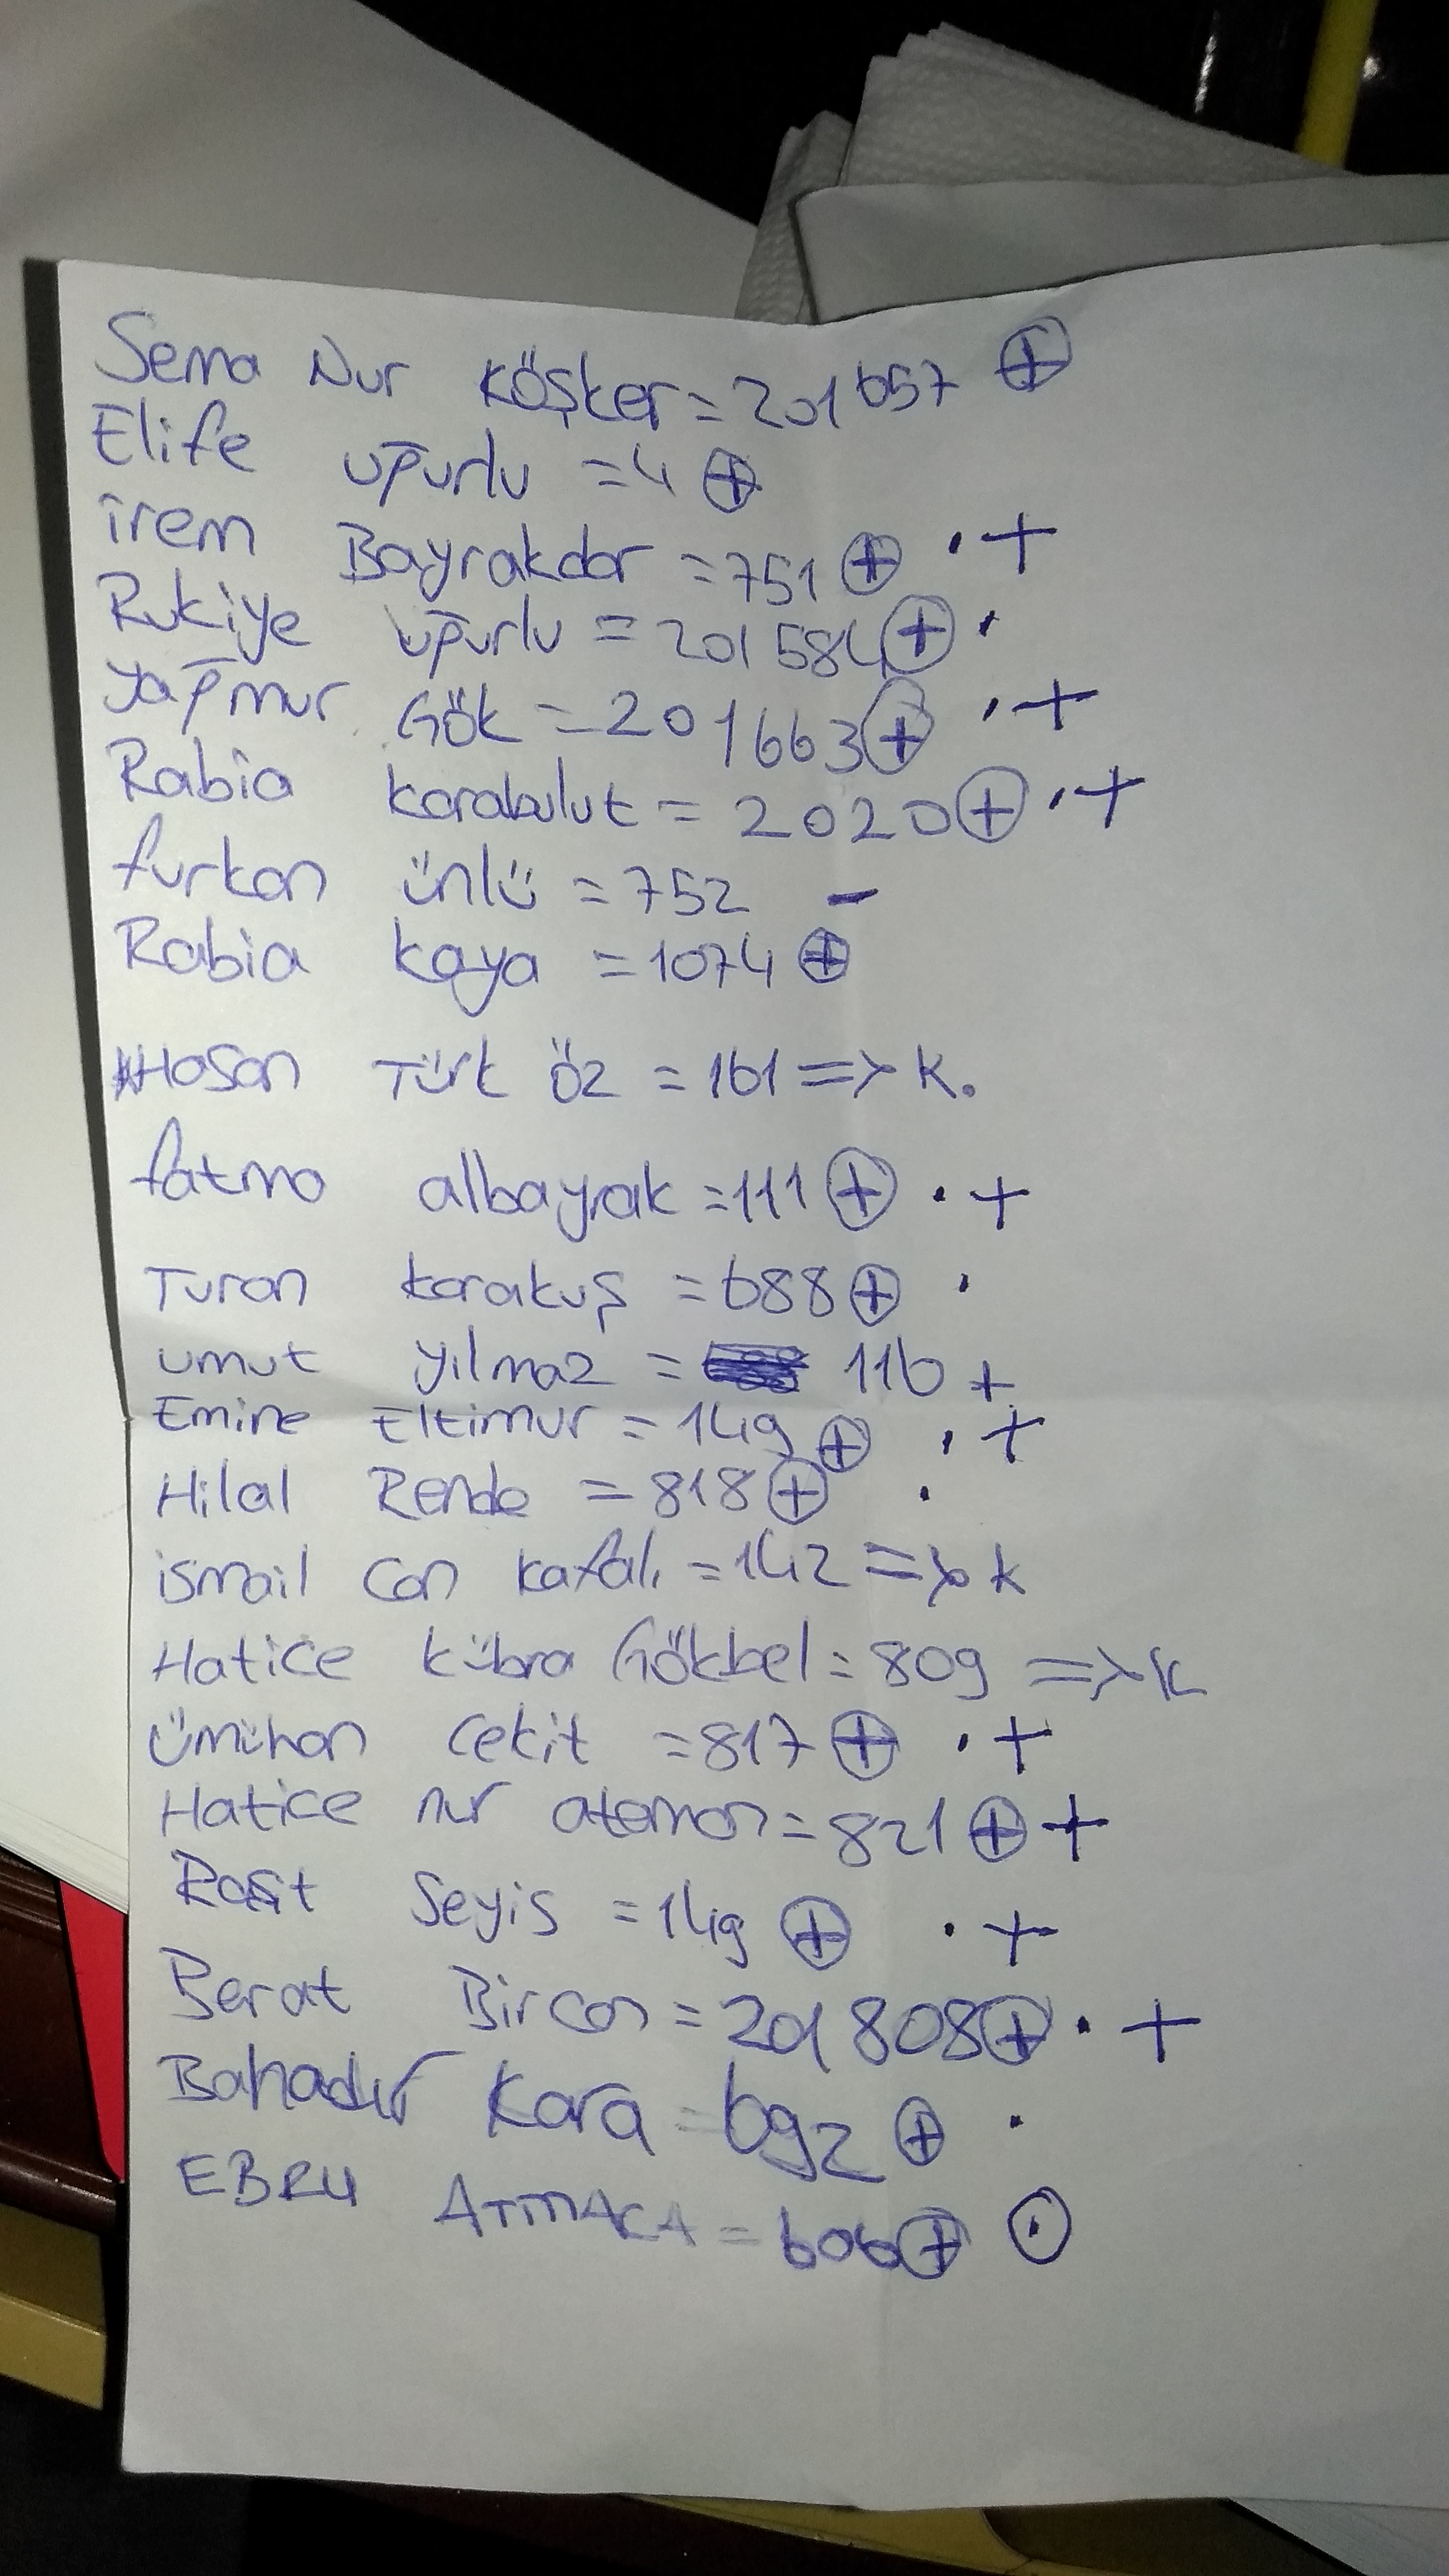 Sema Nur Köşker = 201657 ⊕
Elife uğurlu = 4 ⊕
irem Bayrakdar = 751 ⊕ . +
Rukiye uğurlu = 201584 ⊕ .
yağmur Gök = 201663 ⊕ . +
Rabia karabulut = 2020 ⊕ . +
furkan ünlü = 752 -
Rabia kaya = 1074 ⊕
Hasan Türk öz = 161 => K.
fatma albayrak = 111 ⊕ . +
Turan karakuş = 688 ⊕ .
umut yılmaz = 116 +
Emine Eltimur = 149 ⊕ . +
Hilal Rende = 818 ⊕ .
ismail Can kafalı = 142 => k
Hatice kübra Gökbel = 809 => K
Ümihan Cekit = 817 ⊕ . +
Hatice nur ataman = 821 ⊕ +
Raşit Seyis = 149 ⊕ . +
Berat Bircan = 201808 ⊕ . +
Bahadır Kara = 692 ⊕ .
EBRU ATMACA = 606 ⊕ ⊙